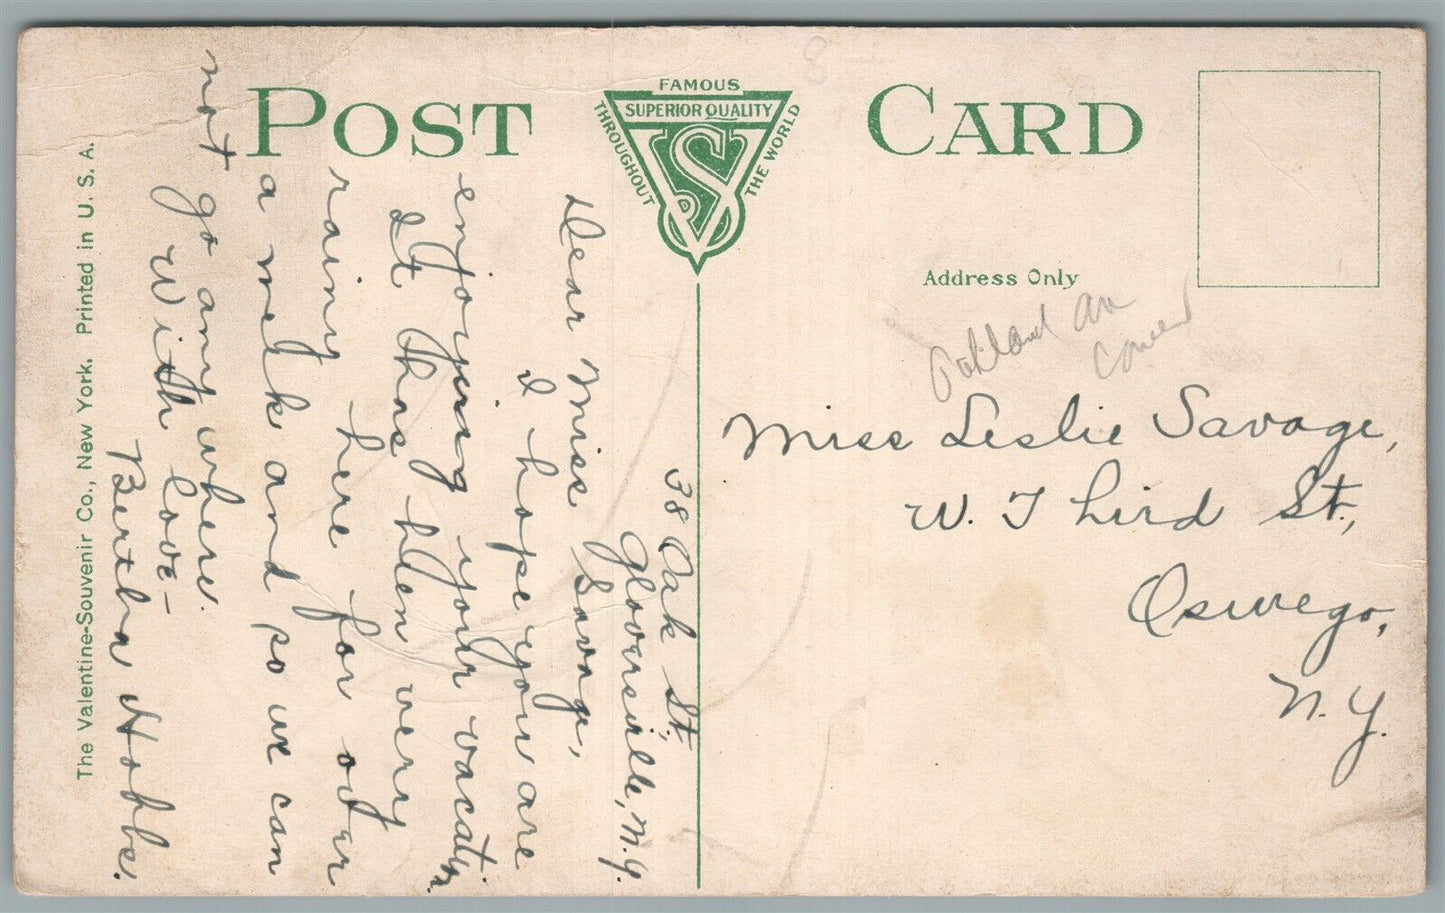 POST CARD
FAMOUS
SUPERIOR QUALITY
THROUGHOUT
THE WORLD
VS
Address Only
Oakland
Miss Leslie Savage,
W. Third St.,
Oswego,
N.Y.
38 Oak St,
Gloversville, N.Y.
Dear Miss Savage,
I hope you are
enjoying your vacation.
It has been very
rainy here for over
a week and so we can
not go any where.
With love-
Bertha Hobbs.
The Valentine-Souvenir Co., New York. Printed in U. S. A.